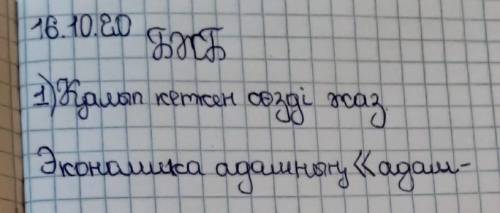 16.10.20
БЖБ
1) Қалып кеткен сөзді жаз
Экономика адамның «адам-